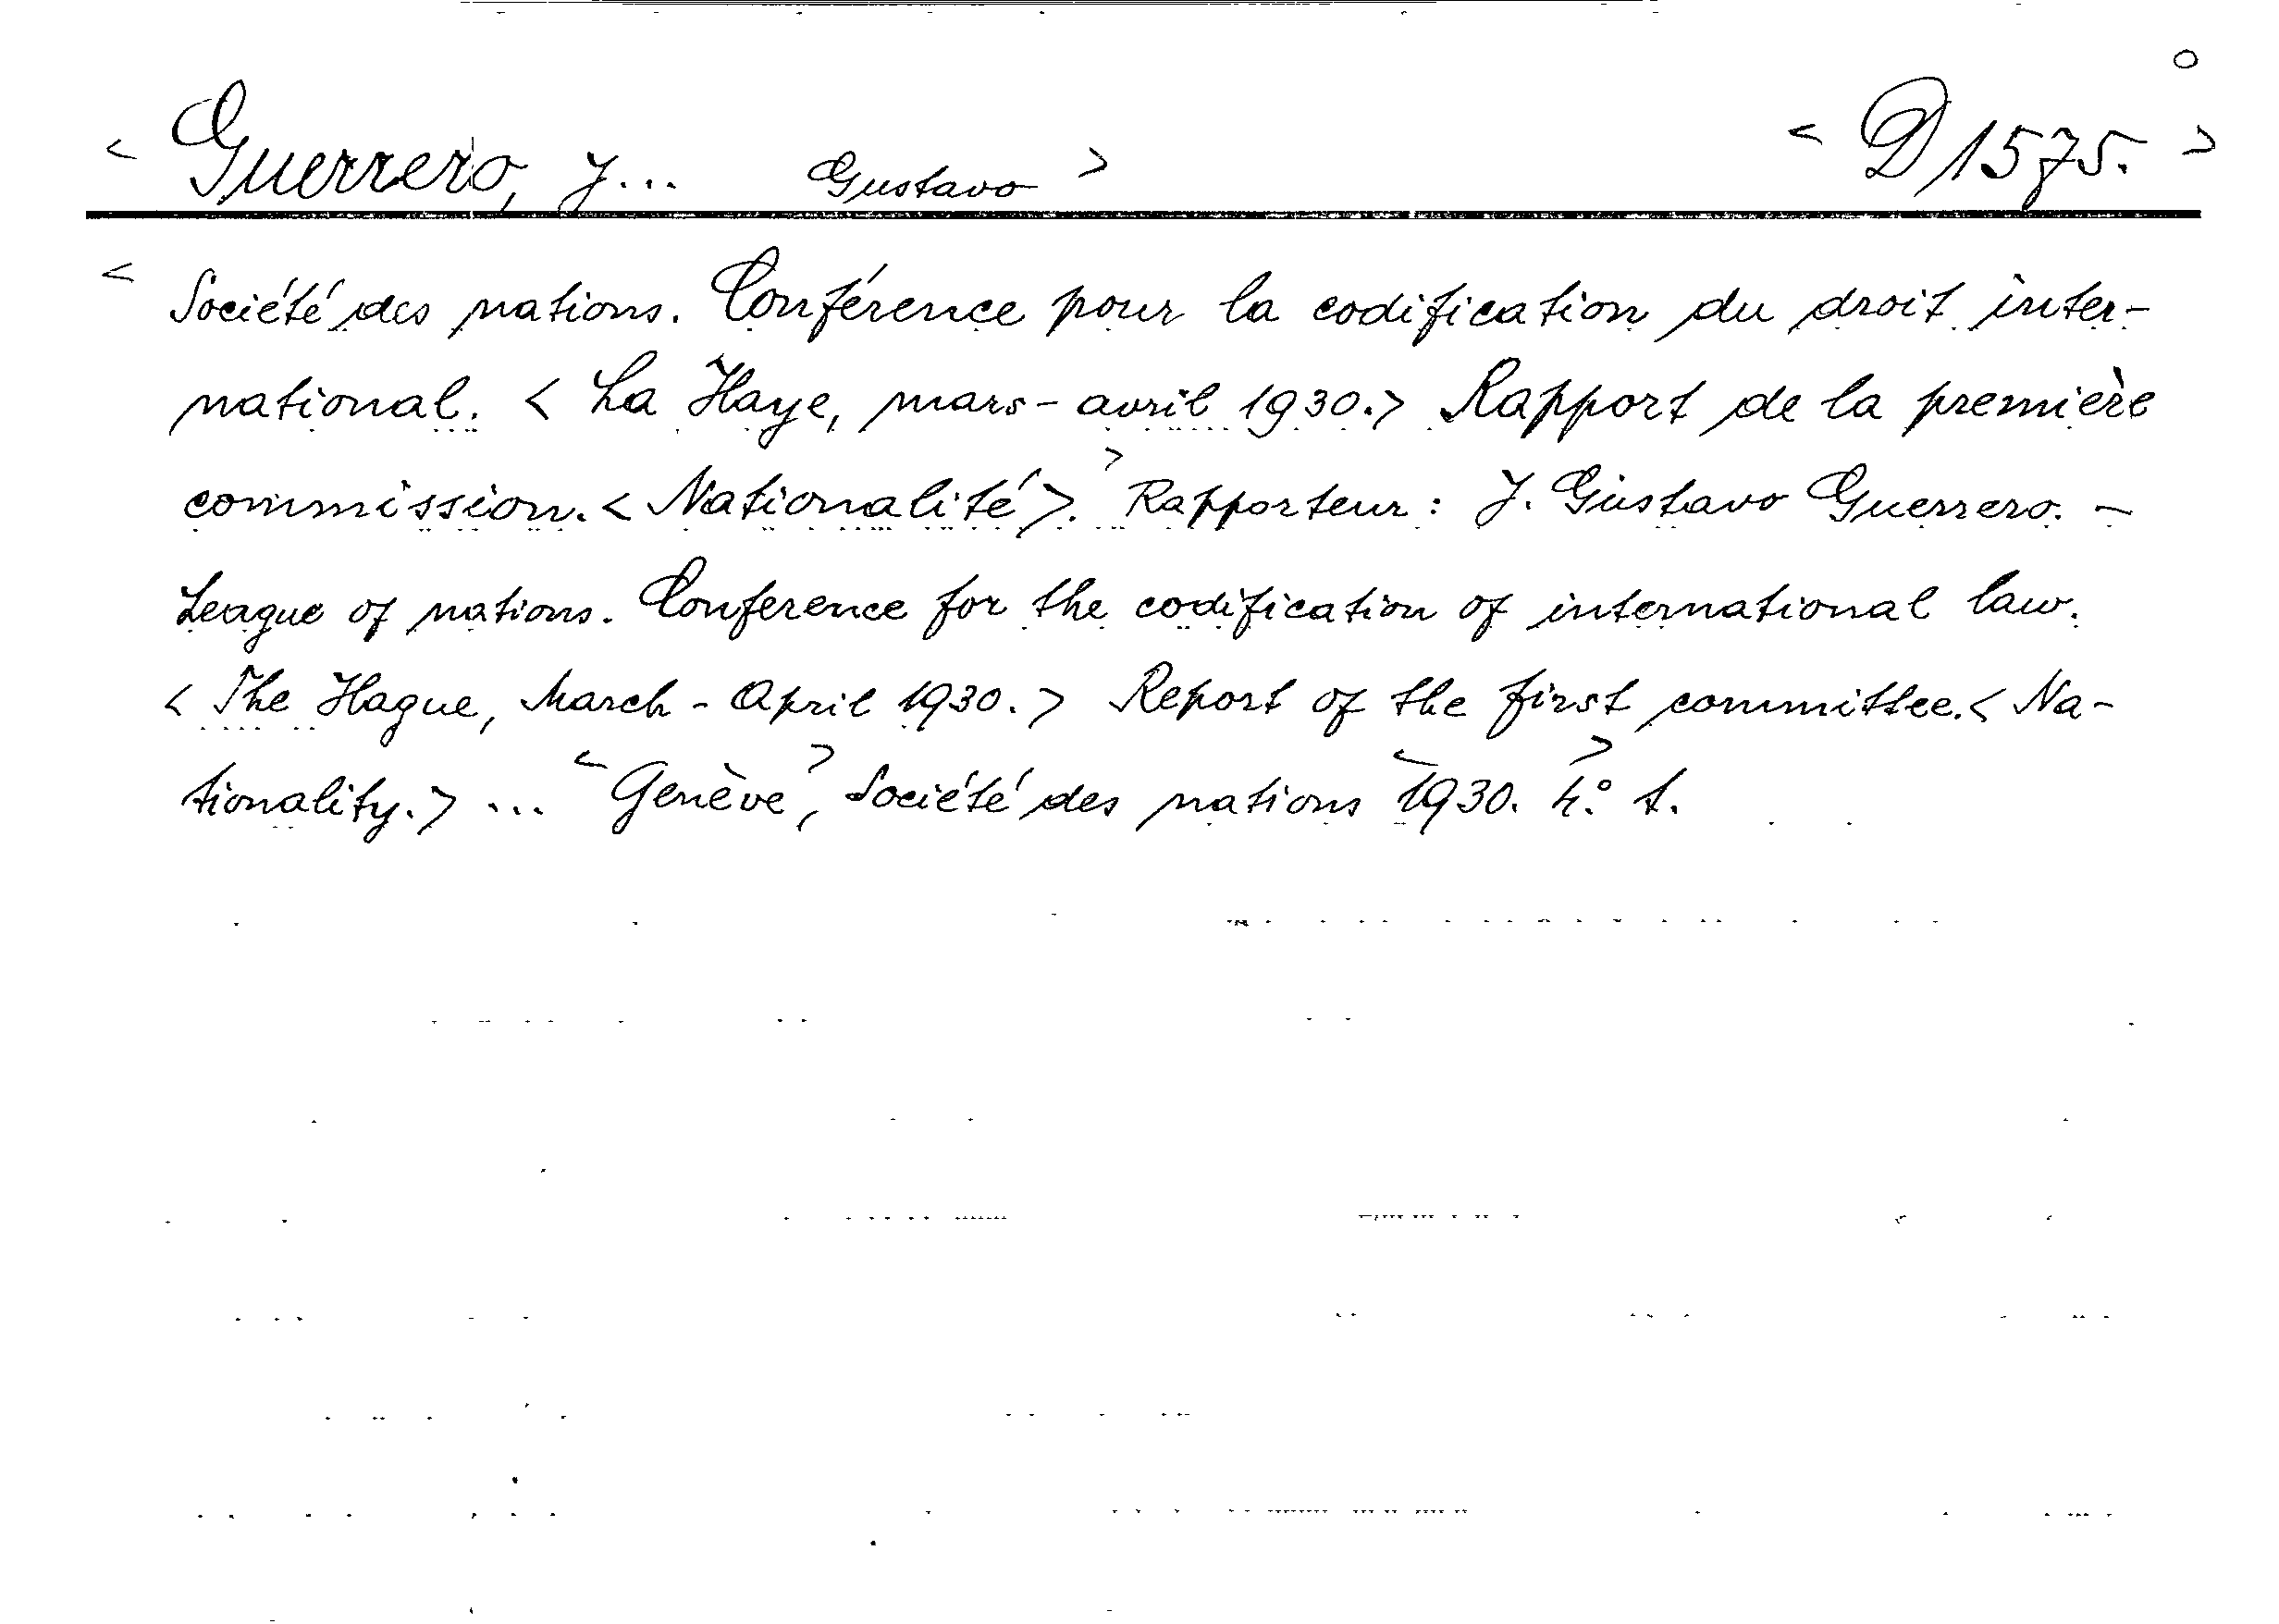 < Guerrero, J... Gustavo > < D 1575. >
< Société des nations. Conférence pour la codification du droit inter-
national. < La Haye, mars - avril 1930. > Rapport de la première
commission. < Nationalité >. > Rapporteur : J. Gustavo Guerrero. -
League of nations. Conference for the codification of international law.
< The Hague, March - April 1930. > Report of the first committee. < Na-
tionality. > ... < Genève >, Société des nations < 1930. > 4:° t.